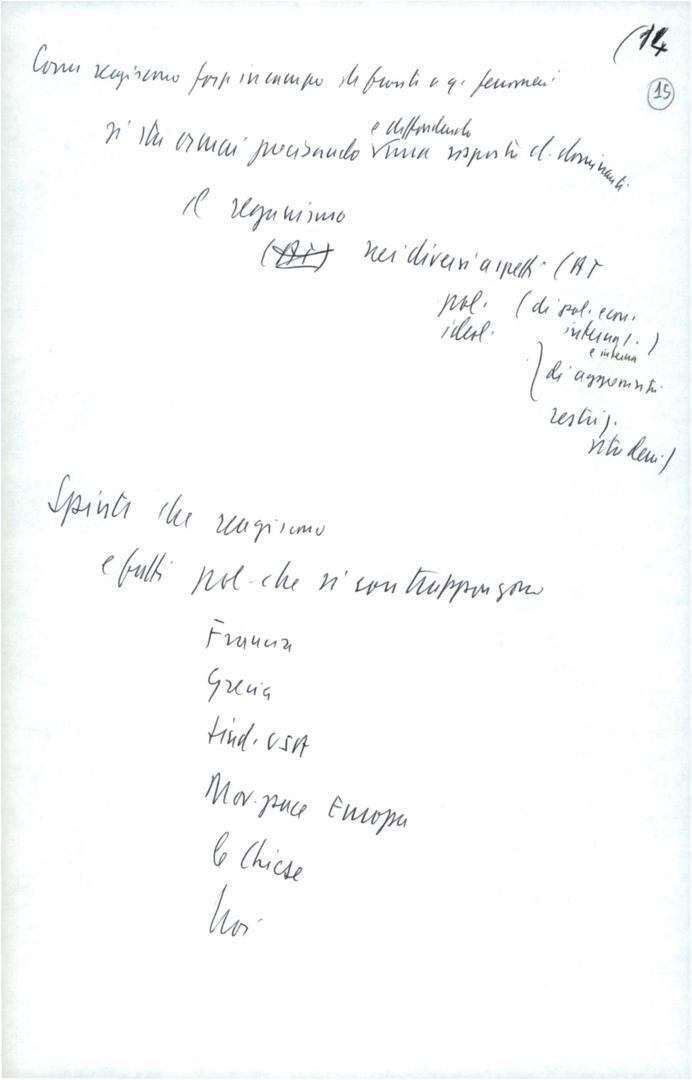 (14
15
Come reagiscono forze in campo di fronte a q. fenomeni
si sta ormai precisando e diffondendo una risposta d. dominanti
il reganismo
nei diversi aspetti (
pol. (di pol. econ.
ideol. internaz.)
e interna
di aggressività
restriz.
vita dem.)
Spinte che reagiscono
e fatti pol. che si contrappongono
Francia
Grecia
Sind. USA
Mov. pace Europa
le Chiese
Noi